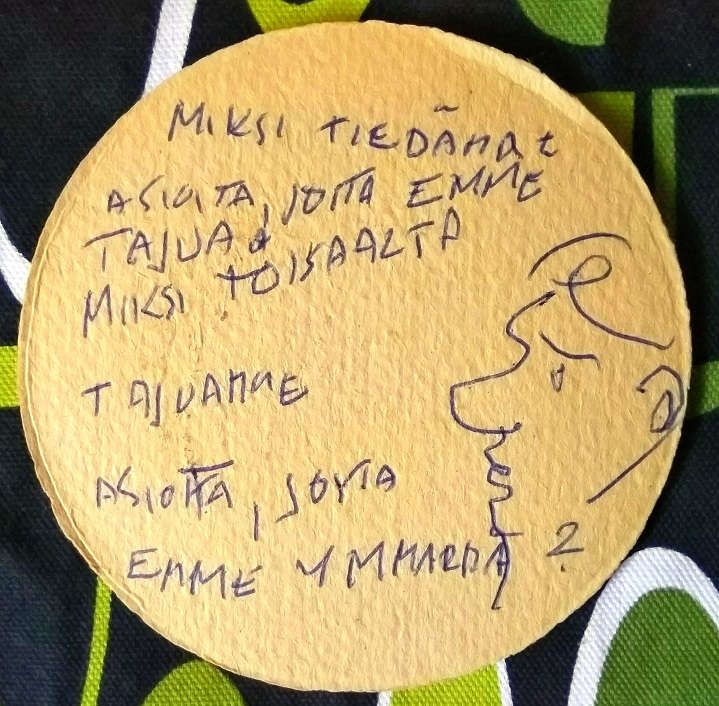 MIKSI TIEDÄMME
ASIOITA, JOITA EMME
TAJUA &
MIKSI TOISAALTA
TAJUAMME
ASIOITA, JOITA
EMME YMMÄRRÄ ?